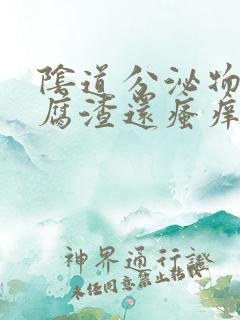 陰道分泌物
腐渣還瘙痒
神界通行證
未经同意禁止转载